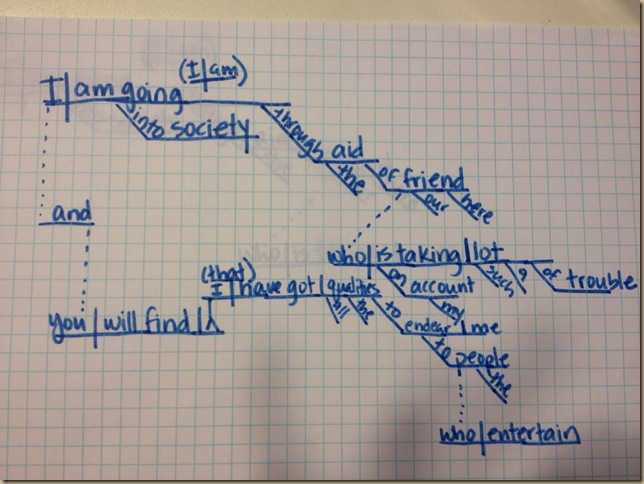 (I am)
I am going
into society
through aid
the
of friend
our
here
and
who is taking lot
such
a
of trouble
on account
my
(that)
I have got qualities
all
the
to endear me
to people
the
you will find
who entertain